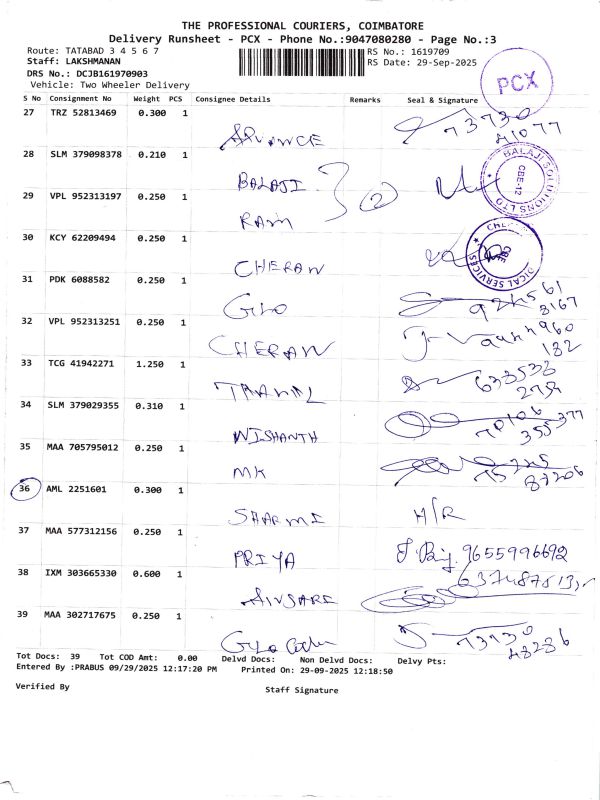 THE PROFESSIONAL COURIERS, COIMBATORE
Delivery Runsheet - PCX - Phone No.:9047080280 - Page No.:3
Route: TATABAD 3 4 5 6 7 RS No.: 1619709
Staff: LAKSHMANAN RS Date: 29-Sep-2025
DRS No.: DCJB161970903
Vehicle: Two Wheeler Delivery
PCX
S No Consignment No Weight PCS Consignee Details Remarks Seal & Signature
27 TRZ 52813469 0.300 1
73730
41077
28 SLM 379098378 0.210 1
BALAJI
BALAJI SOLUTIONS LTD
CBE-12
29 VPL 952313197 0.250 1
2
RAM
30 KCY 62209494 0.250 1
CHERAN
CBE
DICAL SERVICE
31 PDK 6088582 0.250 1
32 VPL 952313251 0.250 1
CHERAN
182
33 TCG 41942271 1.250 1
34 SLM 379029355 0.310 1
NISHANTH
70106
355377
35 MAA 705795012 0.250 1
MK
87206
36 AML 2251601 0.300 1
SHARMI H/R
37 MAA 577312156 0.250 1
PRIYA 9655996692
38 IXM 303665330 0.600 1
39 MAA 302717675 0.250 1
73730
48286
Tot Docs: 39 Tot COD Amt: 0.00 Delvd Docs: Non Delvd Docs: Delvy Pts:
Entered By :PRABUS 09/29/2025 12:17:20 PM Printed On: 29-09-2025 12:18:50
Verified By Staff Signature